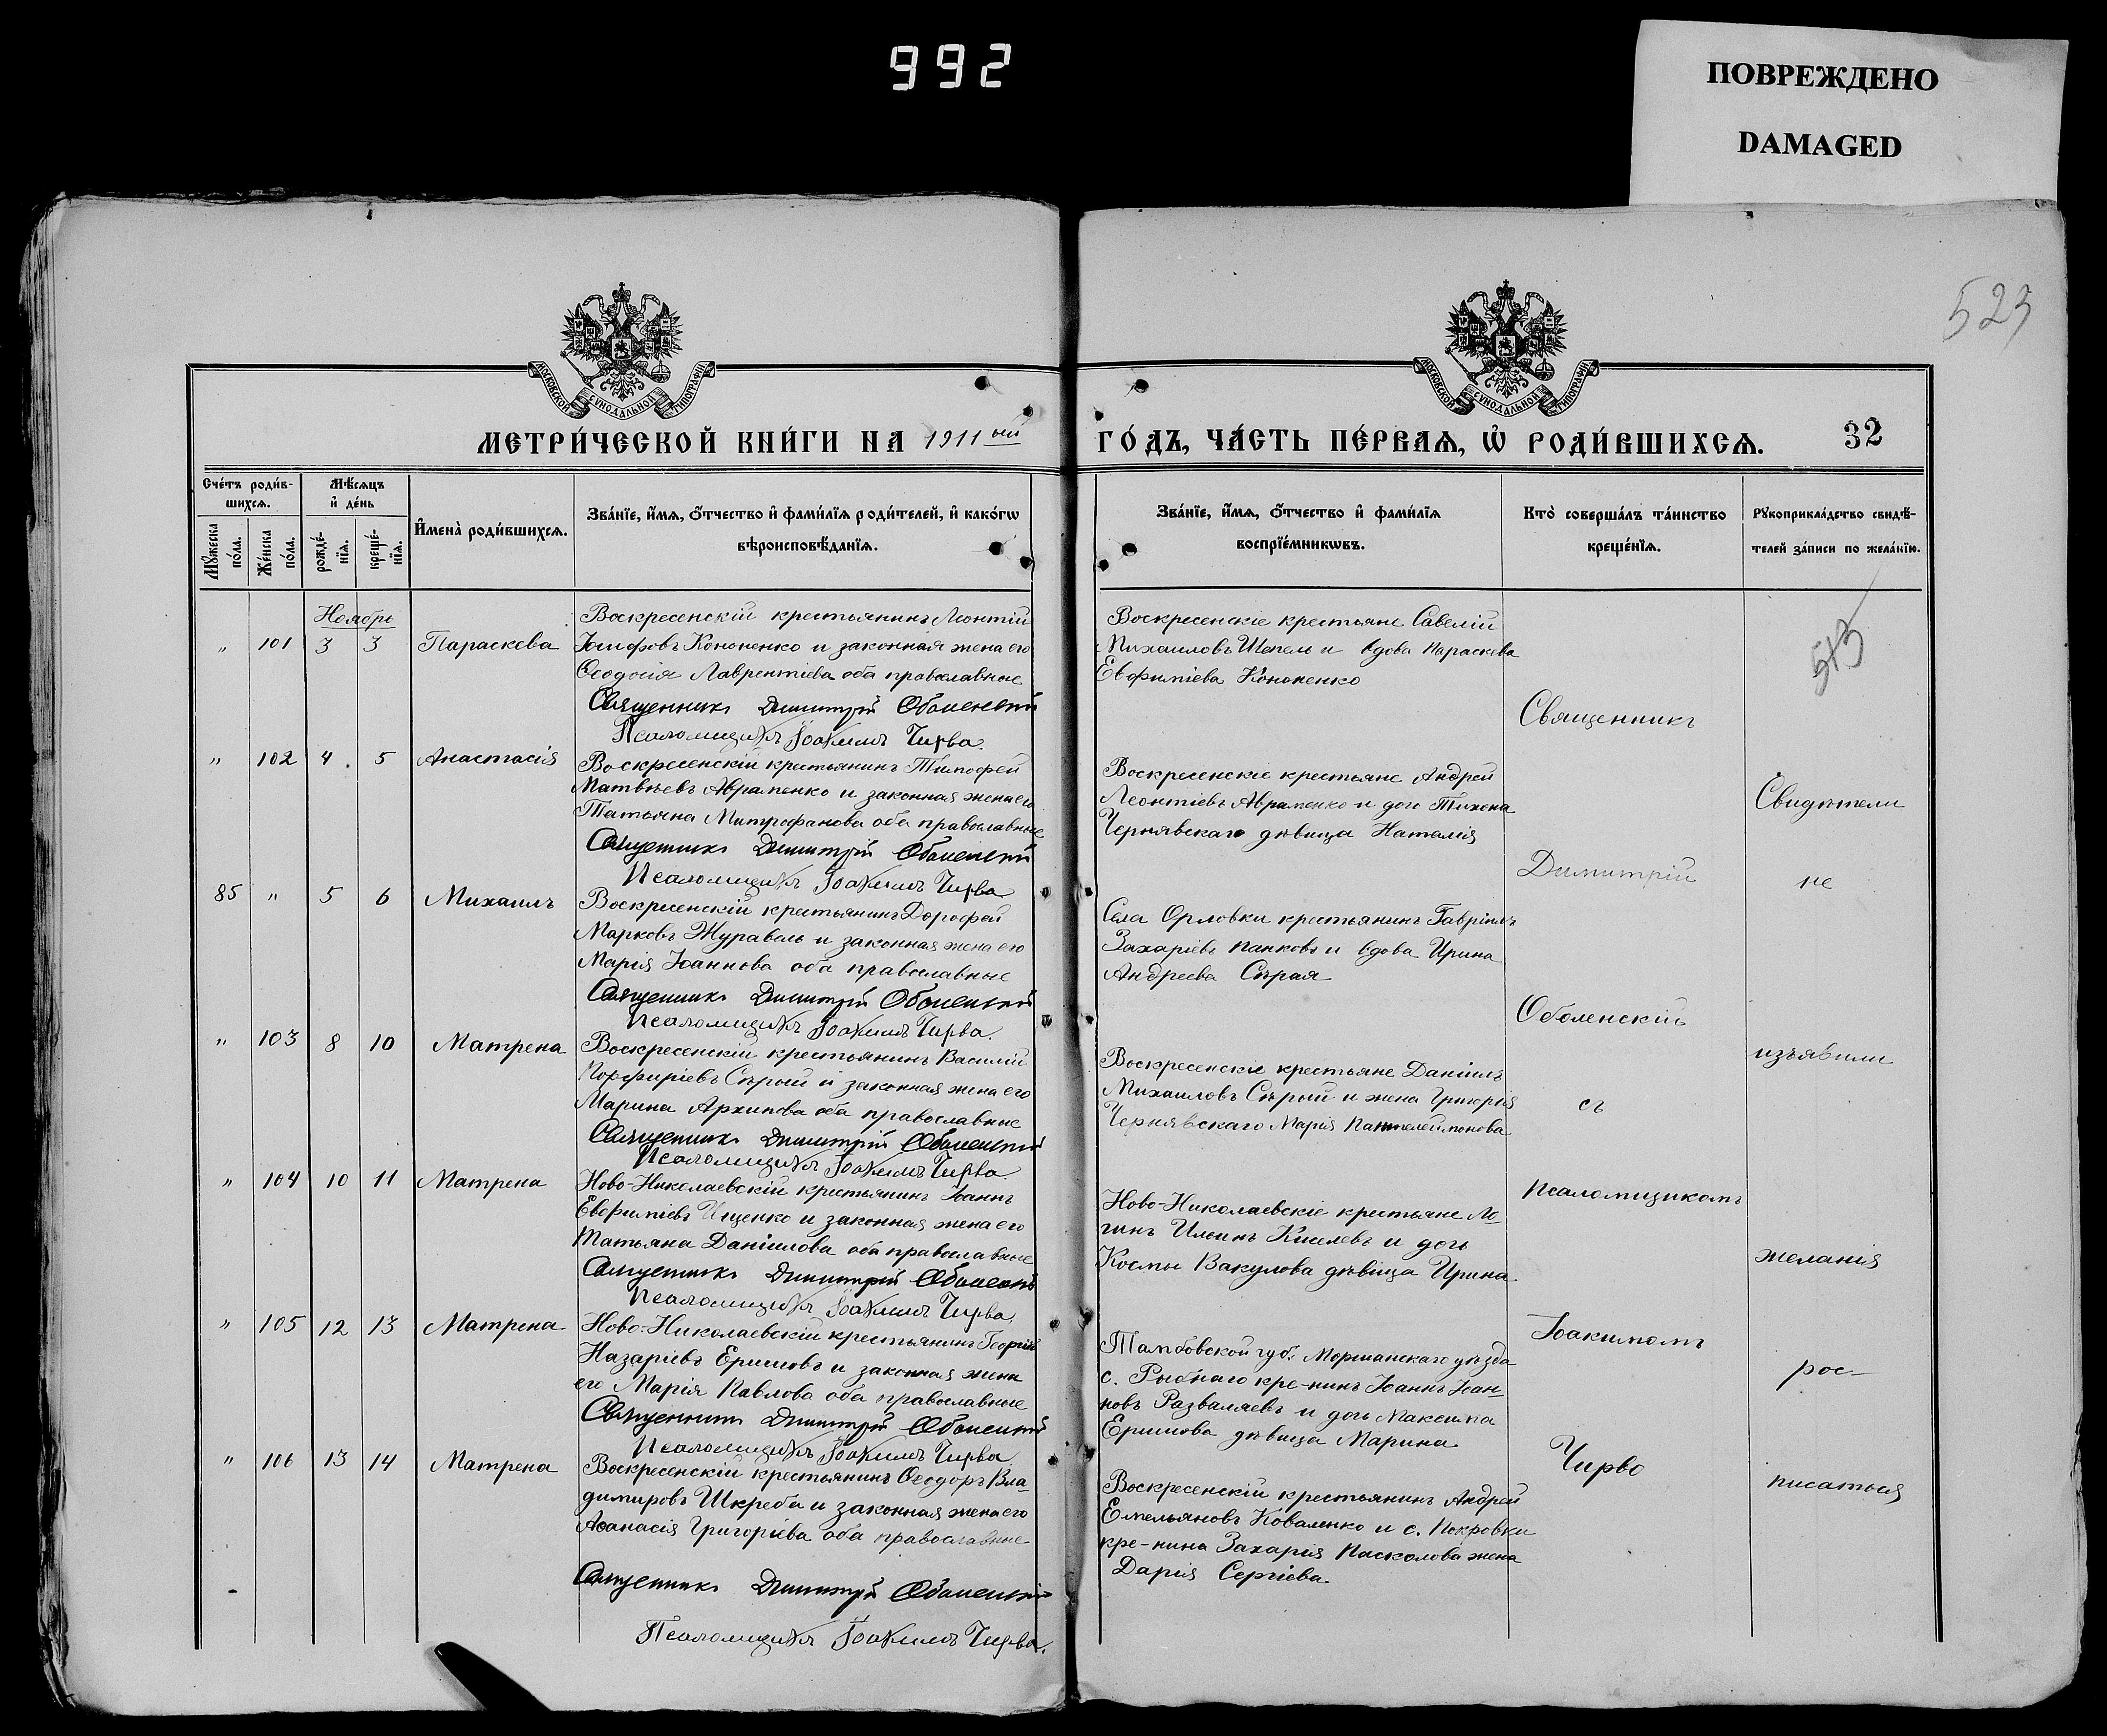 992
ПОВРЕЖДЕНО
DAMAGED
523
МОСКОВСКОЙ СѴНОДАЛЬНОЙ ТИПОГРАФІИ
МОСКОВСКОЙ СѴНОДАЛЬНОЙ ТИПОГРАФІИ
МЕТРИ́ЧЕСКОЙ КНИ́ГИ НА 1911ый ГО́ДЪ, ЧА́СТЬ ПЕ́РВАѦ, Ѡ҆ РОДИ́ВШИХСѦ. 32
Сче́тъ роди́в-
шихсѧ.
Мꙋ́жеска по́ла.
Же́нска по́ла.
Мѣ́сѧцъ и҆ де́нь
рожде́-нїѧ.
креще́-нїѧ.
И҆мена̀ роди́вшихсѧ.
Зва́нїе, и҆́мѧ, ѻ҆́тчество и҆ фами́лїѧ роди́телей, и҆ како́гѡ
вѣроисповѣ́данїѧ.
Зва́нїе, и҆́мѧ, ѻ҆́тчество и҆ фами́лїѧ
воспрїе́мникѡвъ.
Кто̀ соверша́лъ та́инство
креще́нїѧ.
Рꙋкоприкла́дство свидѣ́-
телей за́писи по жела́нїю.
Ноябрь
" 101 3 3 Параскева
Воскресенскій крестьянинъ Леонтій
Іосифовъ Кононенко и законная жена его
Ѳеодосія Лаврентіева оба православные
Священникъ Димитрій Оболенскій
Псаломщикъ Іоакимъ Чирва.
Воскресенскіе крестьяне Савелій
Михаиловъ Шепель и вдова Параскева
Евфиміева Кононенко
513
" 102 4 5 Анастасія
Воскресенскій крестьянинъ Тимофей
Матвѣевъ Авраменко и законная жена его
Татьяна Митрофанова оба православные
Священникъ Димитрій Оболенскій
Псаломщикъ Іоакимъ Чирва
Воскресенскіе крестьяне Андрей
Леонтіевъ Авраменко и дочь Тихона
Чернявскаго дѣвица Наталія
85 " 5 6 Михаилъ
Воскресенскій крестьянинъ Дорофей
Марковъ Журавль и законная жена его
Марія Іоаннова оба православные
Священникъ Димитрій Оболенскій
Псаломщикъ Іоакимъ Чирва.
Села Орловки крестьянинъ Гавріилъ
Захаріевъ Панковъ и вдова Ирина
Андреева Сѣрая
" 103 8 10 Матрена
Воскресенскій крестьянинъ Василій
Порфиріевъ Сѣрый и законная жена его
Марина Архипова оба православные
Священникъ Димитрій Оболенскій
Псаломщикъ Іоакимъ Чирва
Воскресенскіе крестьяне Даніилъ
Михаиловъ Сѣрый и жена Григорія
Чернявскаго Марія Пантелеймонова
" 104 10 11 Матрена
Ново-Николаевскій крестьянинъ Іоаннъ
Евфиміевъ Ищенко и законная жена его
Татьяна Даніилова оба православные
Священникъ Димитрій Оболенскій
Псаломщикъ Іоакимъ Чирва.
Ново-Николаевскіе крестьяне Ло-
гинъ Илоинъ Киселевъ и дочь
Космы Вакулова дѣвица Ирина
" 105 12 13 Матрена
Ново-Николаевскій крестьянинъ Георгій
Назаріевъ Ершовъ и законная жена
его Марія Павлова оба православные
Священникъ Димитрій Оболенскій
Псаломщикъ Іоакимъ Чирва
Тамбовской губ. Моршанскаго уѣзда
с. Рыбнаго кре-нинъ Іоаннъ Іоан-
новъ Разваляевъ и дочь Максима
Ершова дѣвица Марина
" 106 13 14 Матрена
Воскресенскій крестьянинъ Ѳеодоръ Вла-
димировъ Шкреба и законная жена его
Аѳанасія Григоріева оба православные
Священникъ Димитрій Оболенскій
Псаломщикъ Іоакимъ Чирва.
Воскресенскій крестьянинъ Андрей
Емельяновъ Коваленко и с. Покровки
кре-нина Захарія Пасколова жена
Дарія Сергіева
Священникъ
Димитрій
Оболенскій
съ
псаломщикомъ
Іоакимомъ
Чирво
Свидѣтели
не
изъявили
желанія
рос-
писаться